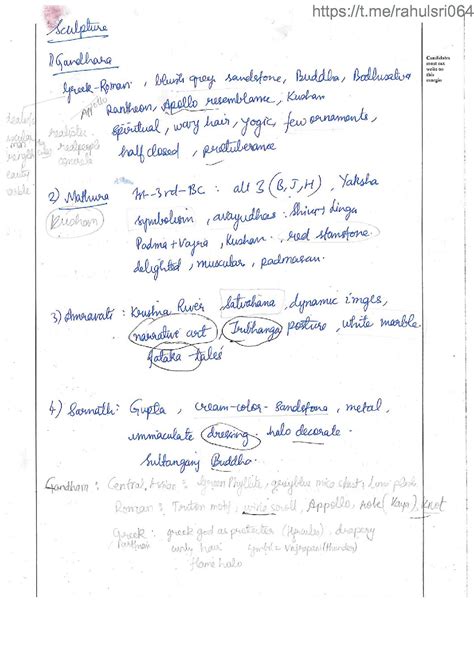 https://t.me/rahulsri064
Candidates
must not
write on
this
margin
Sculpture
1) Gandhara
Greek-Roman, blush grey sandstone, Buddha, Bodhisatva
Pantheon, Apollo resemblance, Kushan
spiritual, wavy hair, yogic, few ornaments,
half closed, protuberance
realistic
2) Mathura 3rd-BC: all 3 (B, J, H), Yaksha
Kushan
symbolism, avayudhas: Shiva → Linga
Padma + Vajra, Kushan, red standtone.
delighted, muscular, padmasan.
3) Amravati: Krushna River, Satvahana, dynamic imges,
narrative art, Tribhanga posture, white marble.
Jataka tales
4) Sarnath: Gupta, cream-color-sandstone, metal,
immaculate dressing. halo decorate.
Sultanganj Buddha.
Gandhara: Central Asian: Green Phyllite, greyblue mica
Roman: Triton motif, scroll, Appollo, robe
Greek: greek god as protector (Hercules), drapery
curly hair symbol = Vajrapani (thunder)
flame halo